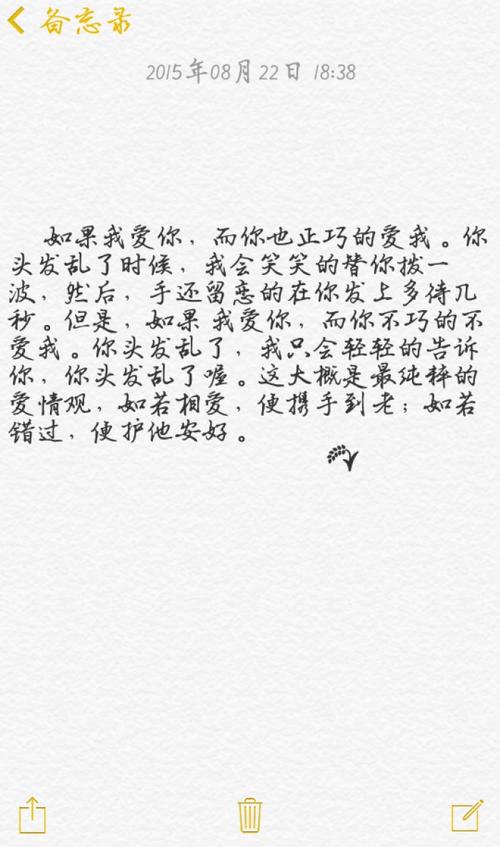 备忘录
2015年08月22日 18:38
如果我爱你，而你也正巧的爱我。你
头发乱了时候，我会笑笑的替你拨一
波，然后，手还留恋的在你发上多待几
秒。但是，如果 我爱你，而你不巧的不
爱我。你头发乱了，我只会轻轻的告诉
你，你头发乱了喔。这大概是最纯粹的
爱情观，如若相爱，便携手到老；如若
错过，便护他安好。